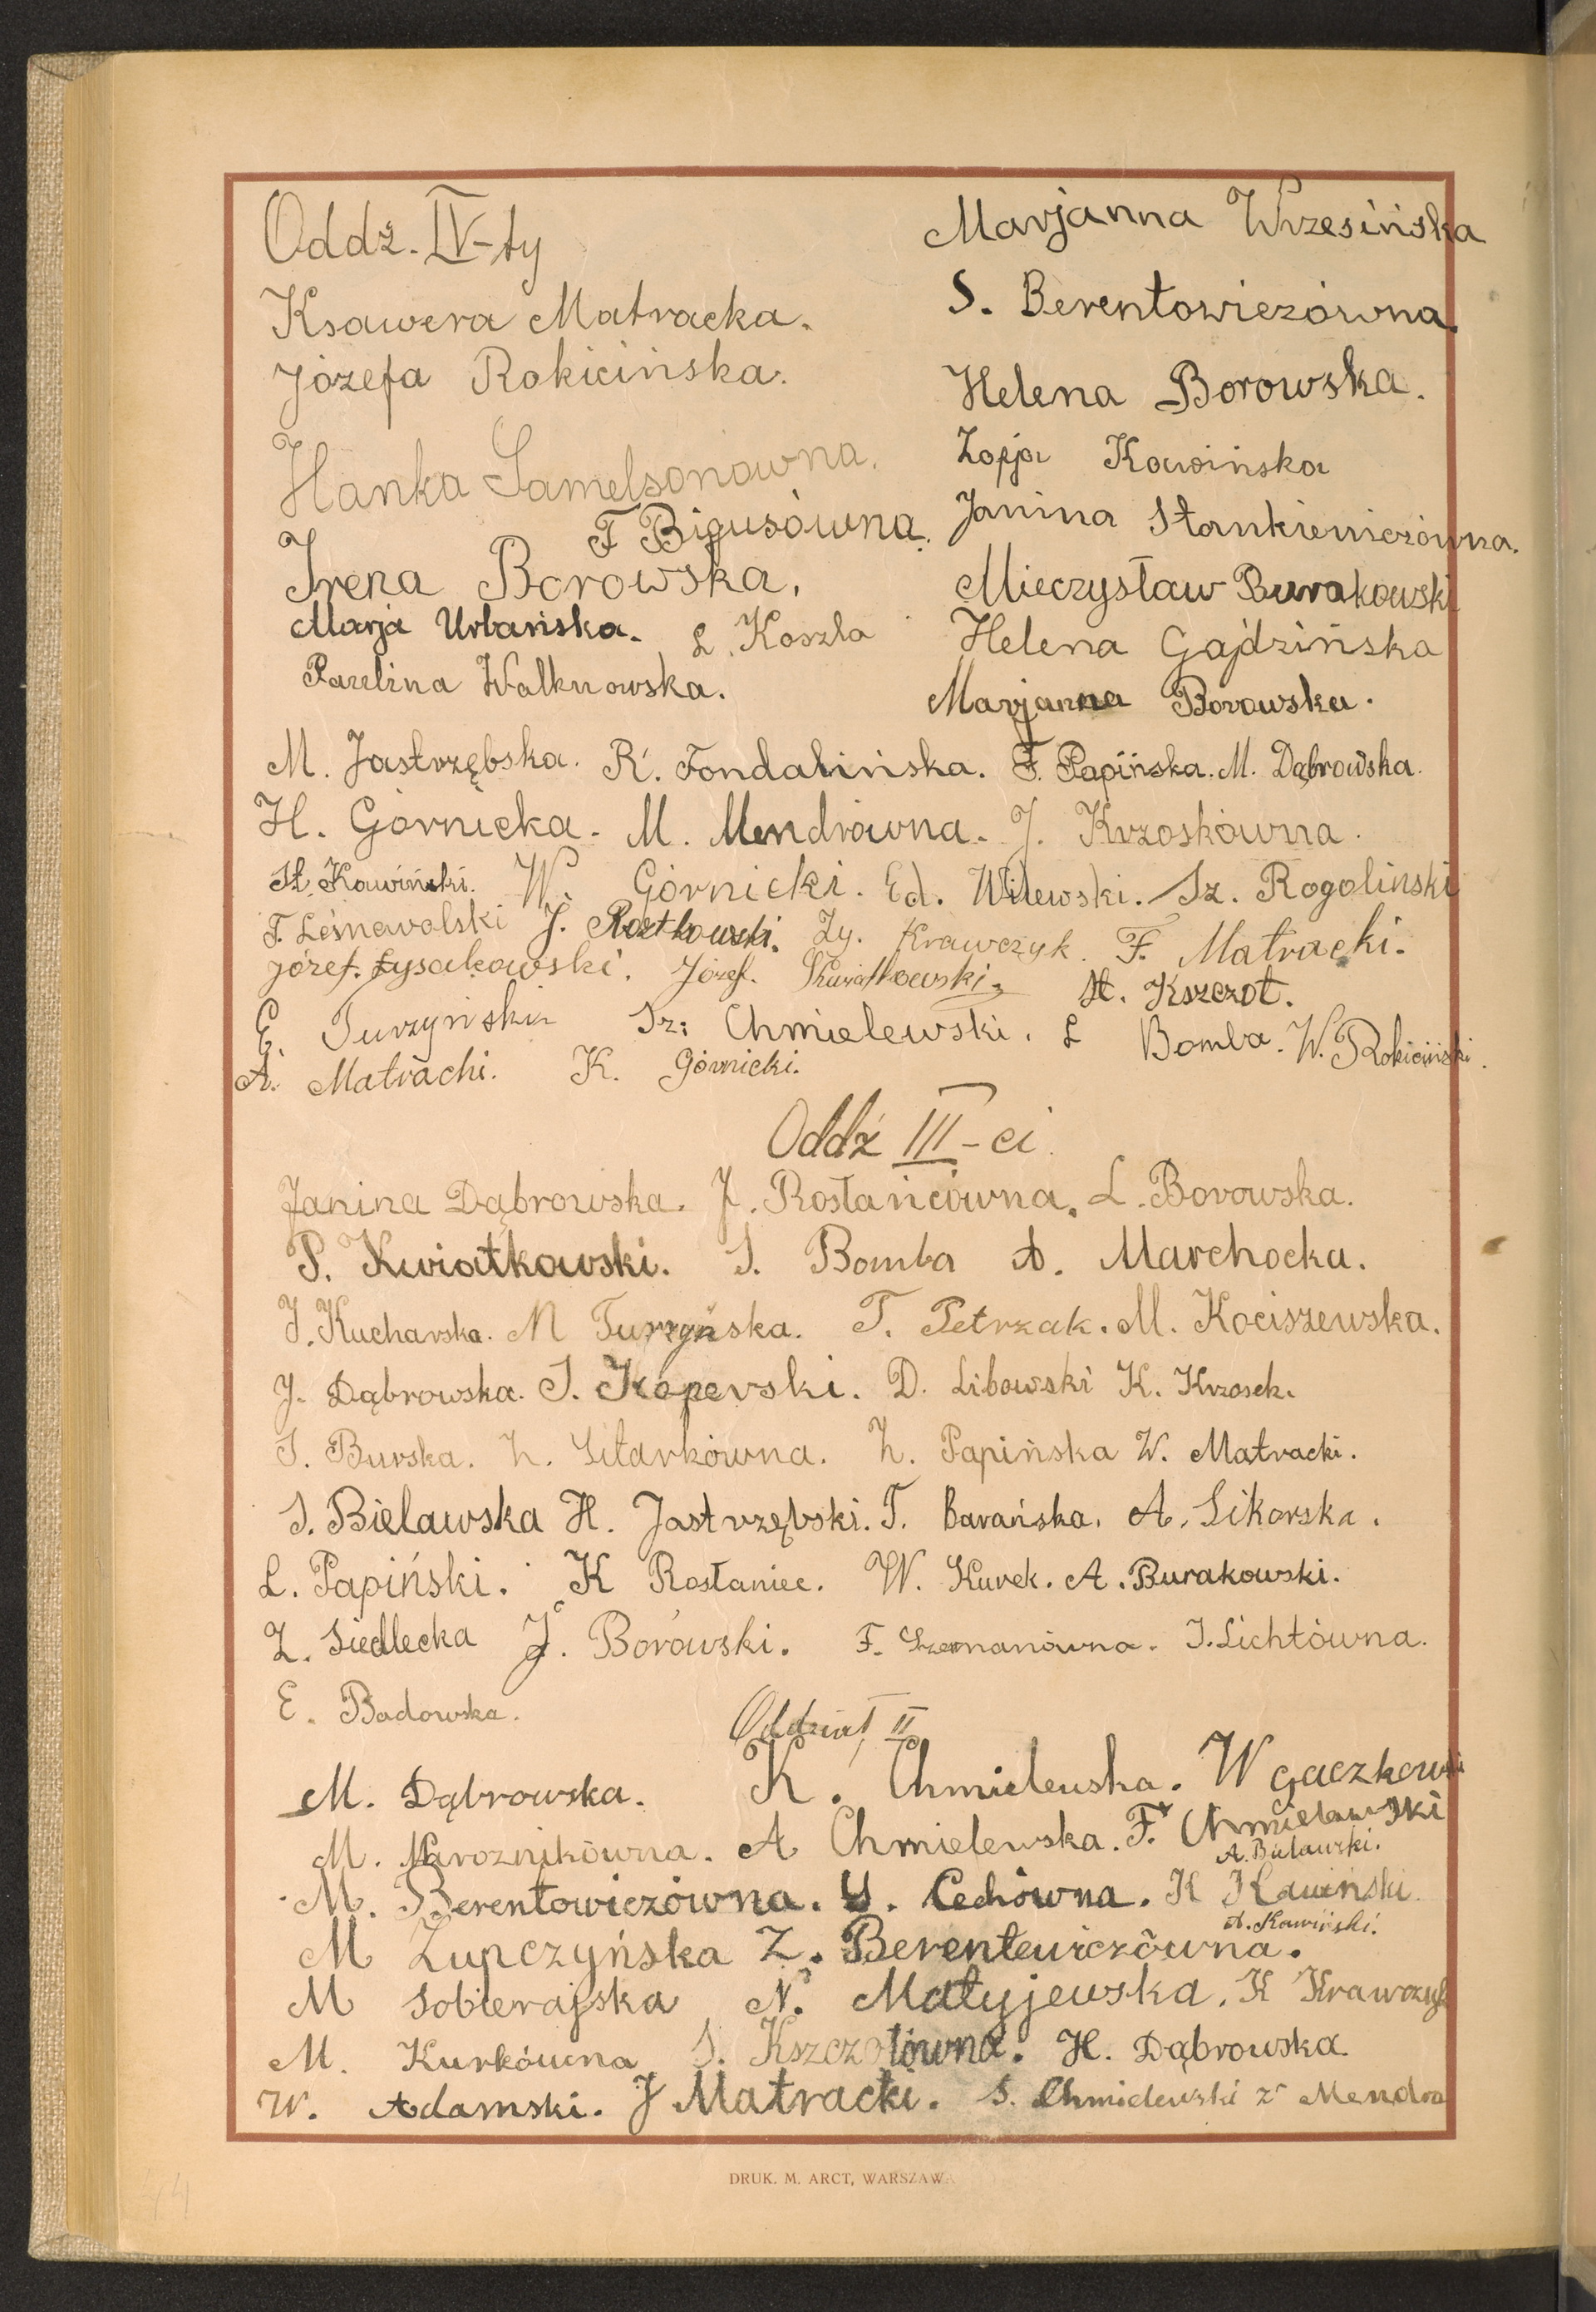 Oddz. IV-ty
Ksawera Matracka.
Józefa Rokicińska.
Hanka Samelsonówna.
F Bigusówna.
Irena Borowska.
Marja Urbańska. L. Koszla
Paulina Walknowska.
Marjanna Wrzesińska
S. Berentowiczówna.
Helena Borowska.
Zofja Kawińska
Janina Stankiewiczówna.
Mieczysław Burakowski
Helena Gajdzińska
Marjanna Borowska.
M. Jastrzębska. R. Fondalińska. F. Papińska. M. Dąbrowska.
H. Górnicka. M. Mendrówna. J. Krzoskówna.
St. Kawiński. W. Górnicki. Ed. Witewski. Sz. Rogoliński
F. Leśnewolski J. Rostkowski. Zy. Krawczyk. F. Matracki.
Józef. Łysakowski. Józef. Kwiatkowski. St. Kszczot.
E. Turzyński Sz: Chmielewski. L Bomba. W. Rokiciński.
A. Matracki. K. Górnicki.
Oddź III-ci.
Janina Dąbrowska. J. Rostańcówna. L. Borowska.
P. Kwiatkowski. S. Bomba A. Marchocka.
J. Kucharska. M Turzyńska. T. Petrzak. M. Kociszewska.
J. Dąbrowska. S. Koperski. D. Libowski K. Krzosek.
S. Burska. Z. Sitarkówna. Z. Papińska W. Matracki.
S. Bielawska H. Jastrzębski. T. Barańska. A. Sikorska.
L. Papiński. K Rostaniec. W. Kurek. A. Burakowski.
Z. Siedlecka J. Borowski. F. Szermanówna. I. Lichtówna.
E. Badowska.
Oddział II
M. Dąbrowska. K. Chmielewska. W Gaczkowski
M. Mroznikówna. A Chmielewska. F. Chmielewski
A. Bielawski.
M. Berentowiczówna. Y. Cechówna. K Kawiński.
A. Kawiński.
M Zupczyńska Z. Berentewiczówna.
M Sobierajska N. Matyjewska. K Krawczyk
M. Kurkówna S. Kszczotówna. H. Dąbrowska
W. Adamski. J Matracki. S. Chmielewski Z Mendra
DRUK. M. ARCT, WARSZAW